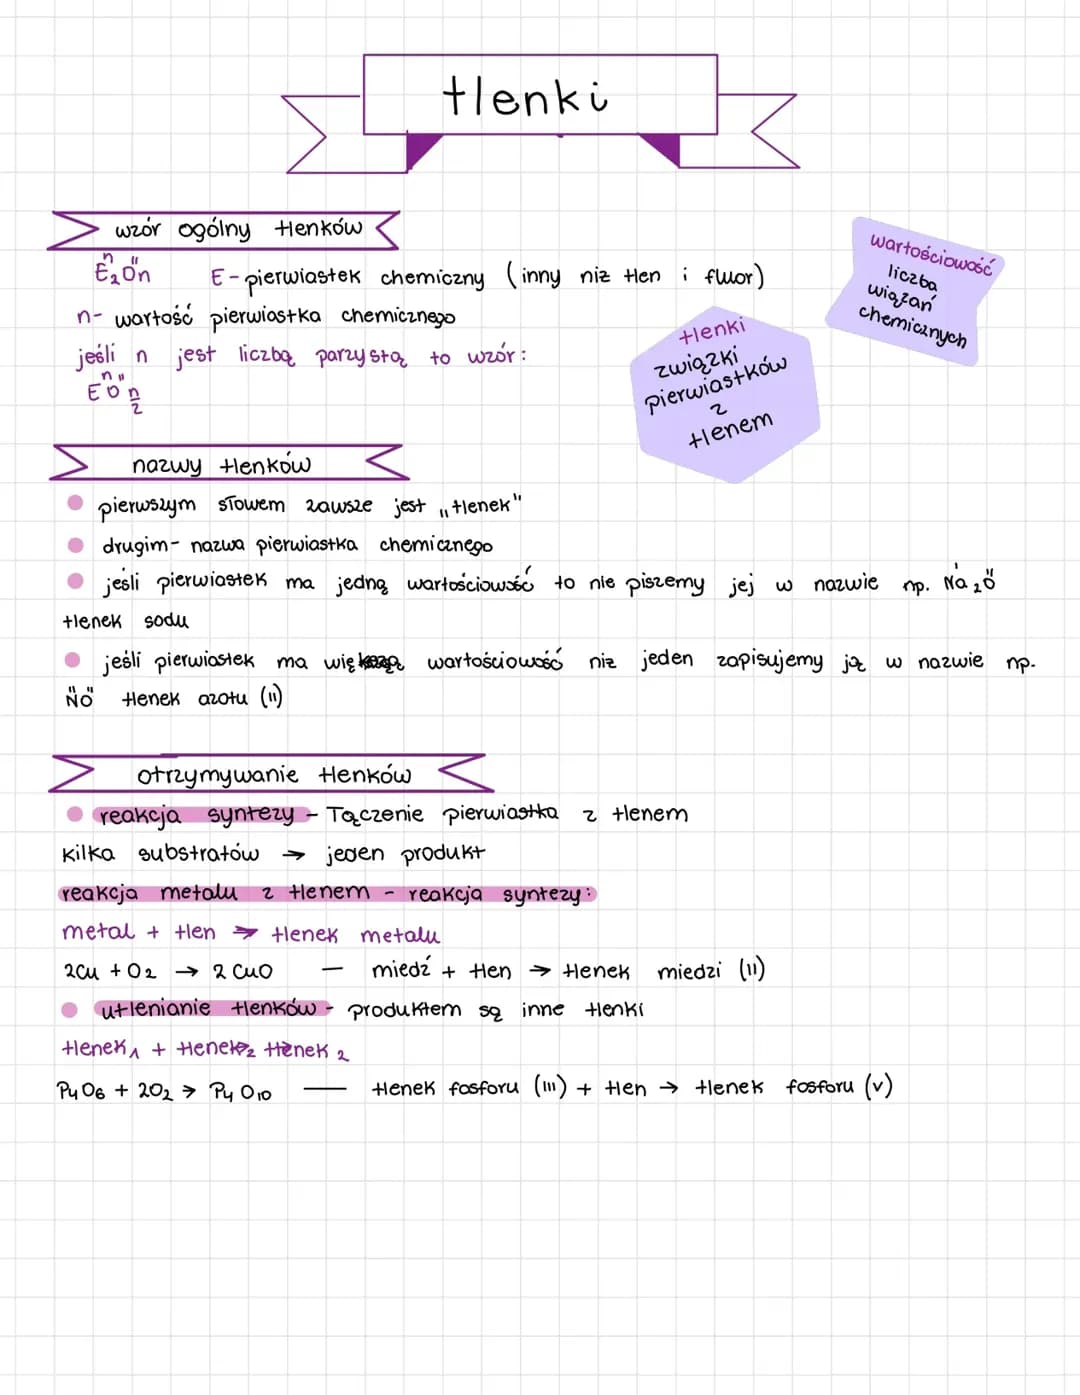 tlenki
wzór ogólny tlenków
n II
E₂On E - pierwiastek chemiczny (inny niż tlen i fluor)
n - wartość pierwiastka chemicznego
jeśli n jest liczbą parzystą to wzór:
n II
E O n/2
wartościowość
liczba
wiązań
chemicznych
tlenki
związki
pierwiastków
z
tlenem
nazwy tlenków
pierwszym słowem zawsze jest „tlenek"
drugim - nazwa pierwiastka chemicznego
jeśli pierwiastek ma jedną wartościowość to nie piszemy jej w nazwie np. Na₂O
tlenek sodu
jeśli pierwiastek ma większą wartościowość niż jeden zapisujemy ją w nazwie np.
NO tlenek azotu (II)
otrzymywanie tlenków
reakcja syntezy - łączenie pierwiastka z tlenem
kilka substratów → jeden produkt
reakcja metalu z tlenem - reakcja syntezy:
metal + tlen → tlenek metalu
2Cu + O₂ → 2 CuO — miedź + tlen → tlenek miedzi (II)
utlenianie tlenków - produktem są inne tlenki
tlenek₁ + tlenek₂ tlenek ₂
P₄O₆ + 2O₂ → P₄O₁₀ — tlenek fosforu (III) + tlen → tlenek fosforu (V)